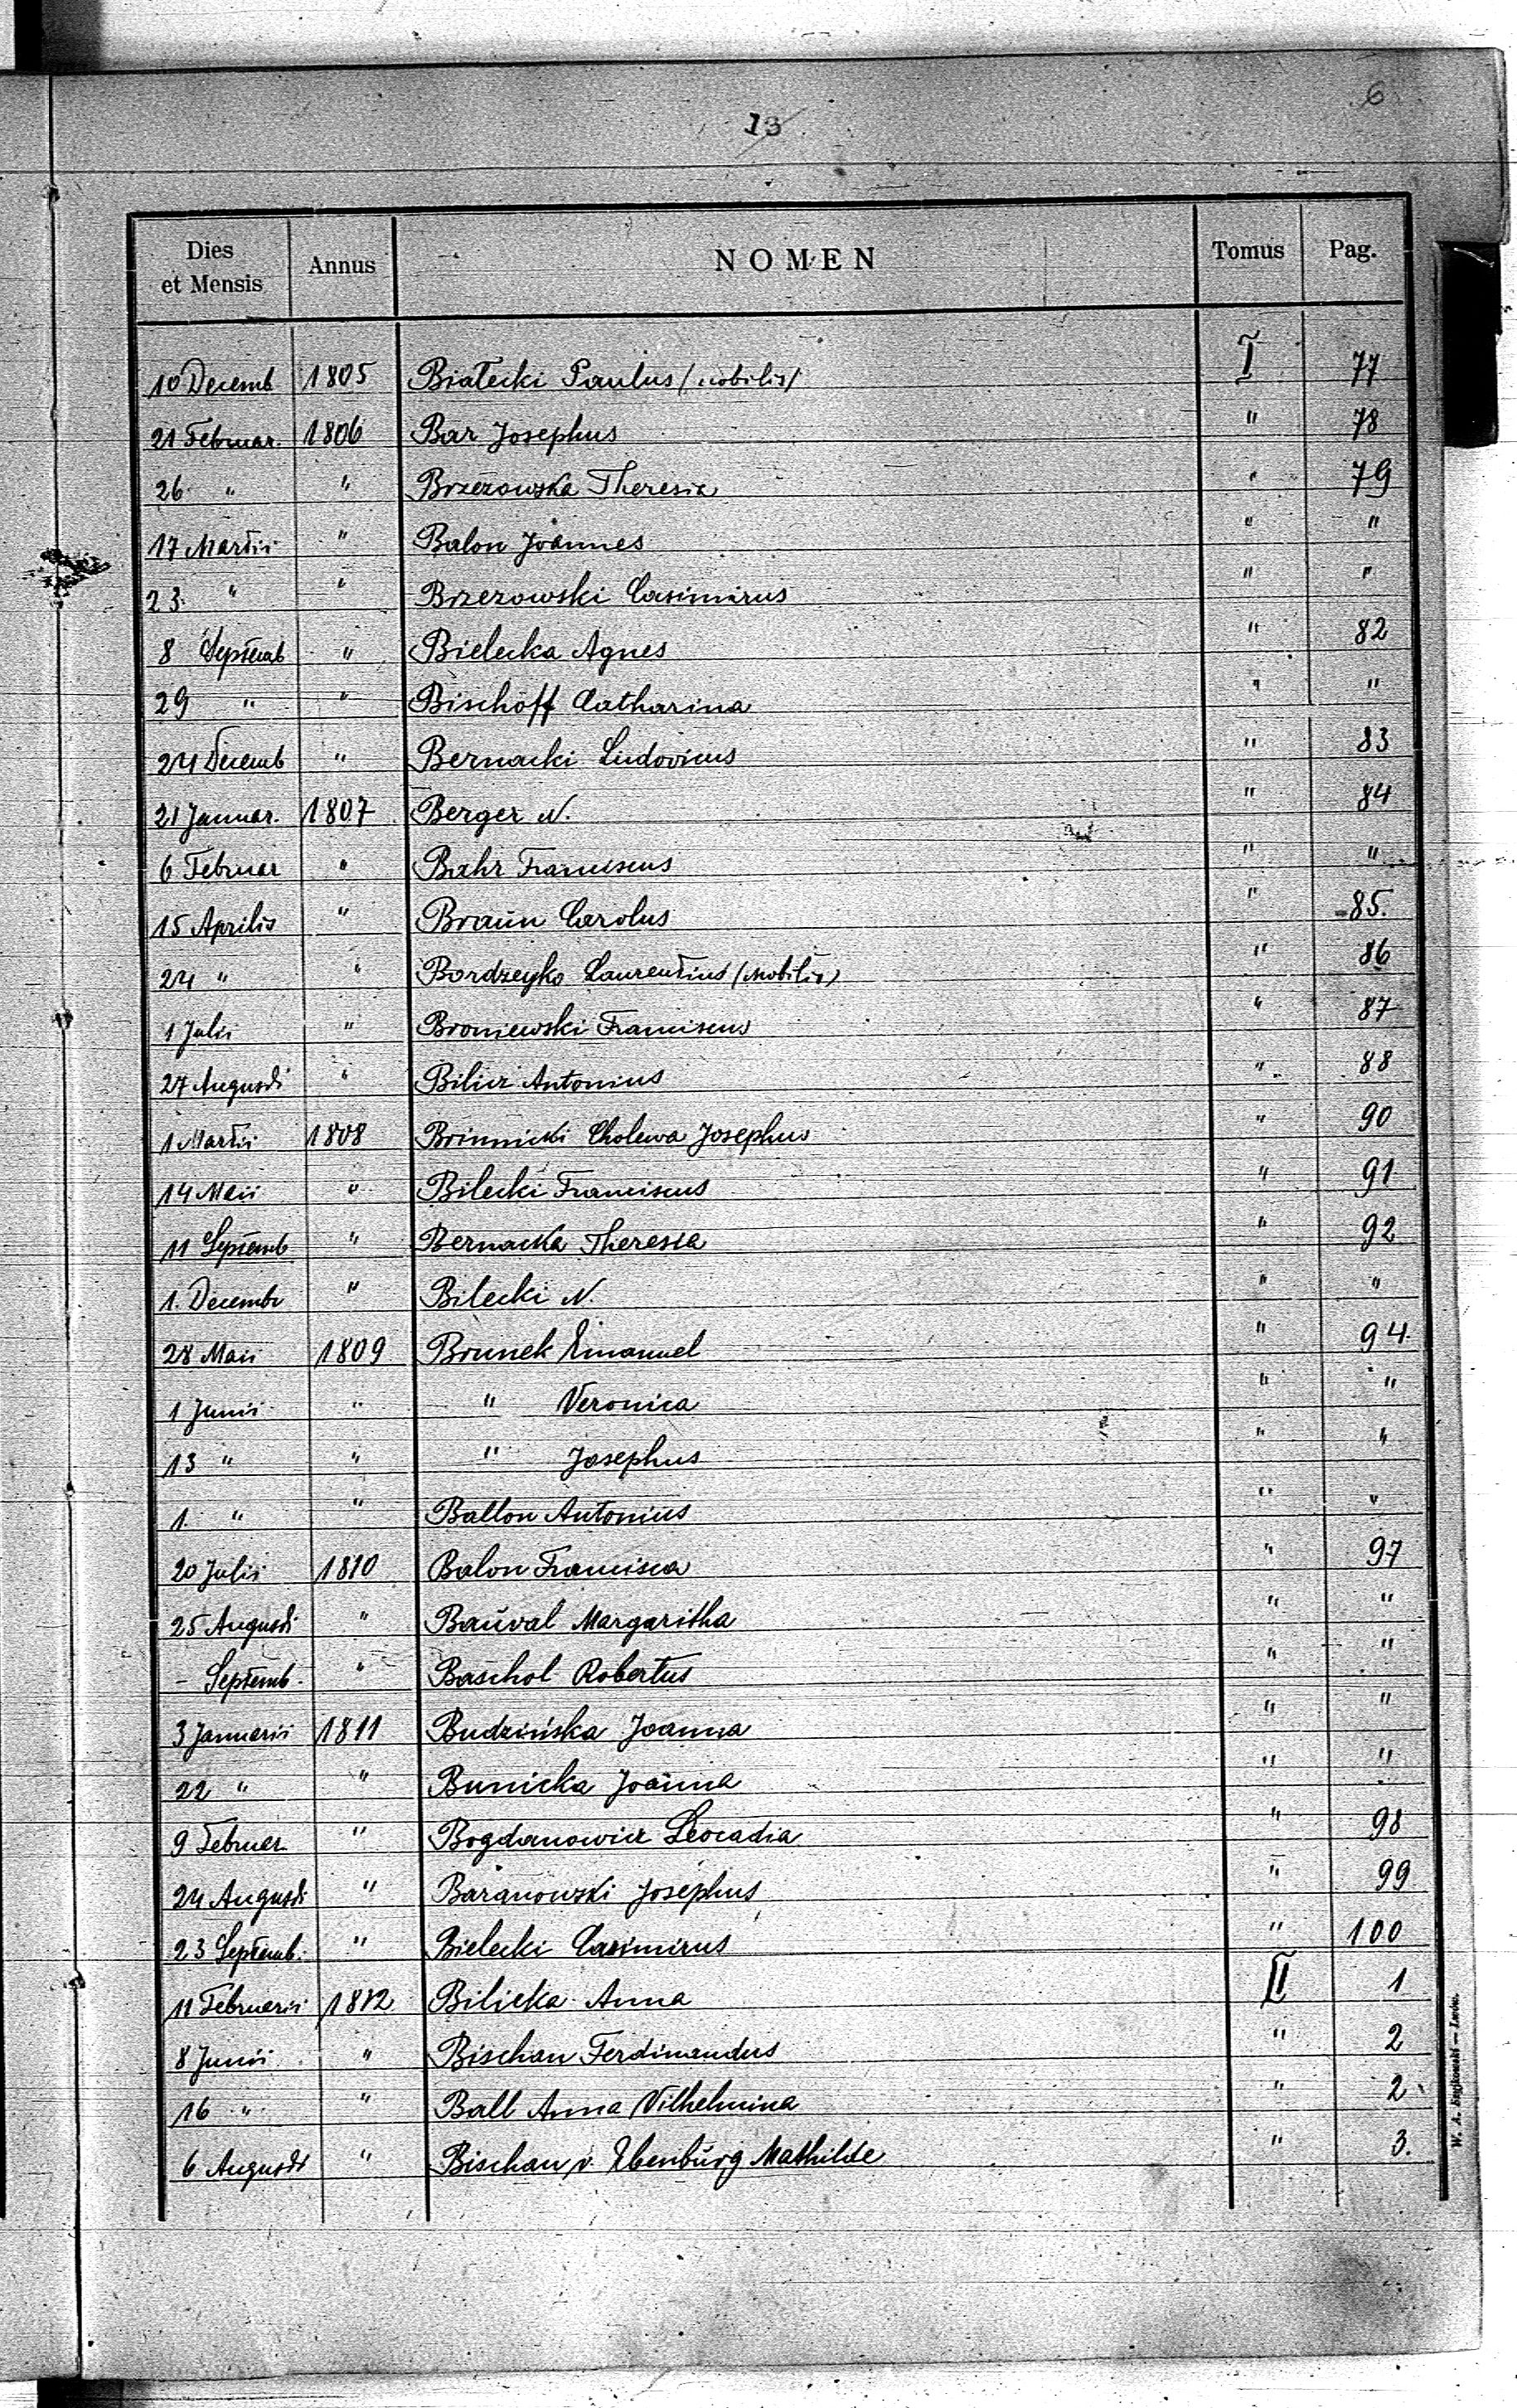 6
13
Dies et Mensis Annus NOMEN Tomus Pag.
10 Decemb 1805 Białecki Paulus /nobilis/ I 77
21 Februar. 1806 Bar Josephus " 78
26 " " Brzezowska Theresia " 79
17 Martii " Balon Joannes " "
23. " " Brzezowski Casimirus " "
8 Septemb " Bielecka Agnes " 82
29 " " Bischoff Catharina " "
24 Decemb " Bernacki Ludovicus " 83
21 Januar. 1807 Berger N. " 84
6 Februar " Bahr Franciscus " "
15 Aprilis " Braun Carolus " 85.
24 " " Bordzeyko Laurentius (nobilis) " 86
1 Julii " Broniewski Franciscus " 87
27 Augusti " Bilicz Antonius " 88
1 Martii 1808 Brinnicki Cholewa Josephus " 90
14 Maii " Bilecki Franciscus " 91
11 Septemb " Bernacka Theresia " 92
1. Decembr " Bilecki N. " "
28 Maii 1809 Brunek Emanuel " 94.
1 Junii " " Veronica " "
13 " " " Josephus " "
1. " " Ballon Antonius " "
20 Julii 1810 Balon Francisca " 97
25 Augusti " Bauval Margaritha " "
- Septemb. " Baschol Robertus " "
3 Januarii 1811 Budzińska Joanna " "
22 " " Bunicka Joanna " "
9 Februar. " Bogdanowicz Leocadia " 98
24 Augusti " Baranowski Josephus " 99
23 Septemb. " Bielecki Casimirus " 100
11 Februarii 1812 Bilicka Anna II 1
8 Junii " Bischan Ferdinandus " 2
16 " " Ball Anna Vilhelmina " 2
6 Augusti " Bischan v. Ebenburg Mathilde " 3.